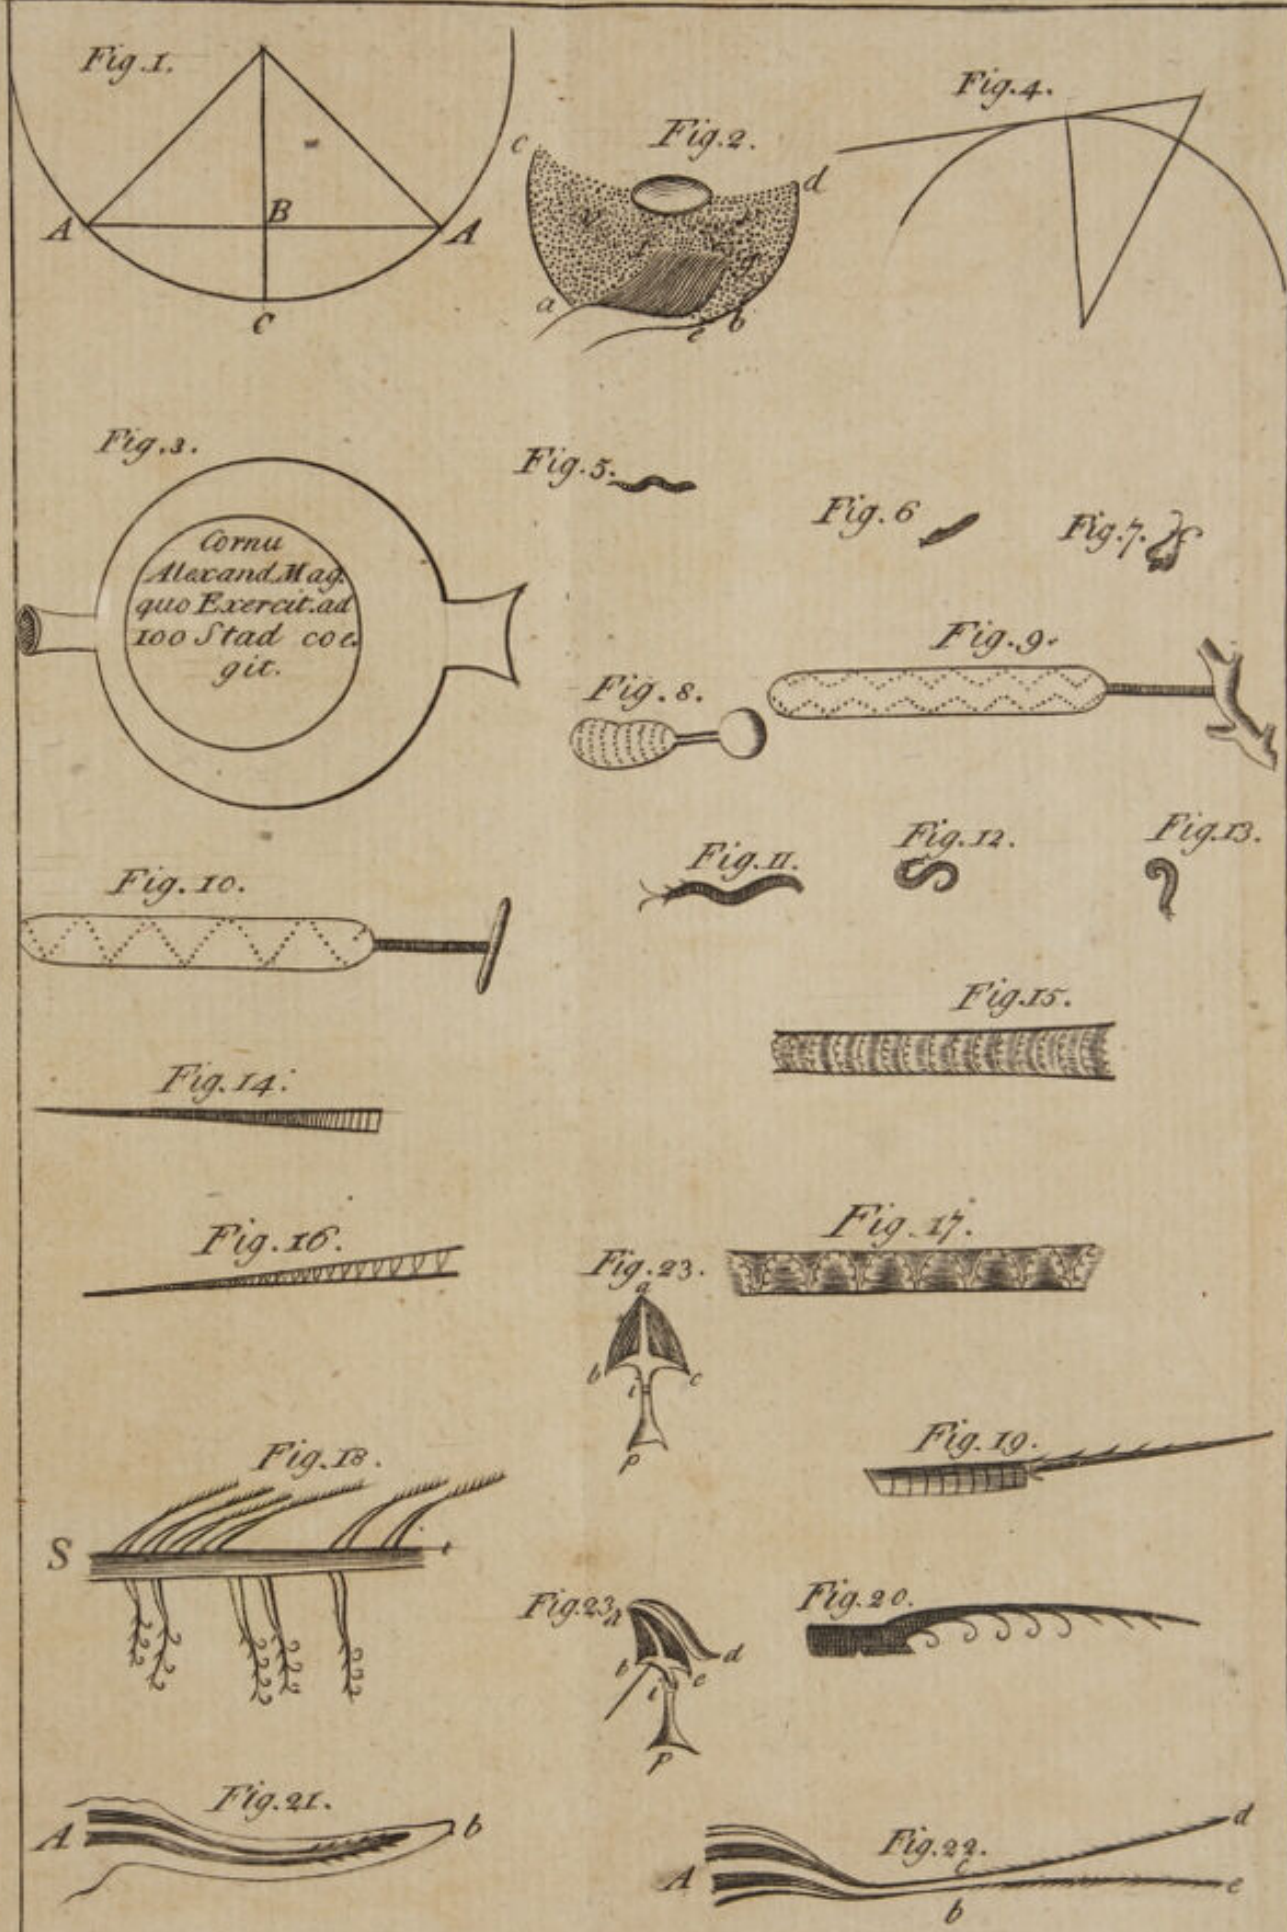 Fig.1.
A
B
A
C
Fig.2.
c
d
a
b
e
Fig.4.
Fig.3.
Cornu
Alexand.Mag.
quo Exercit.ad
100 Stad coe
git.
Fig.5.
Fig.6
Fig.7.
Fig.8.
Fig.9.
Fig.10.
Fig.11.
Fig.12.
Fig.13.
Fig.14.
Fig.15.
Fig.16.
Fig.17.
Fig.23.
a
b
c
i
p
Fig.18.
S
t
Fig.19.
Fig.23.
a
b
d
e
i
p
Fig.20.
Fig.21.
A
b
Fig.22.
A
c
b
d
e